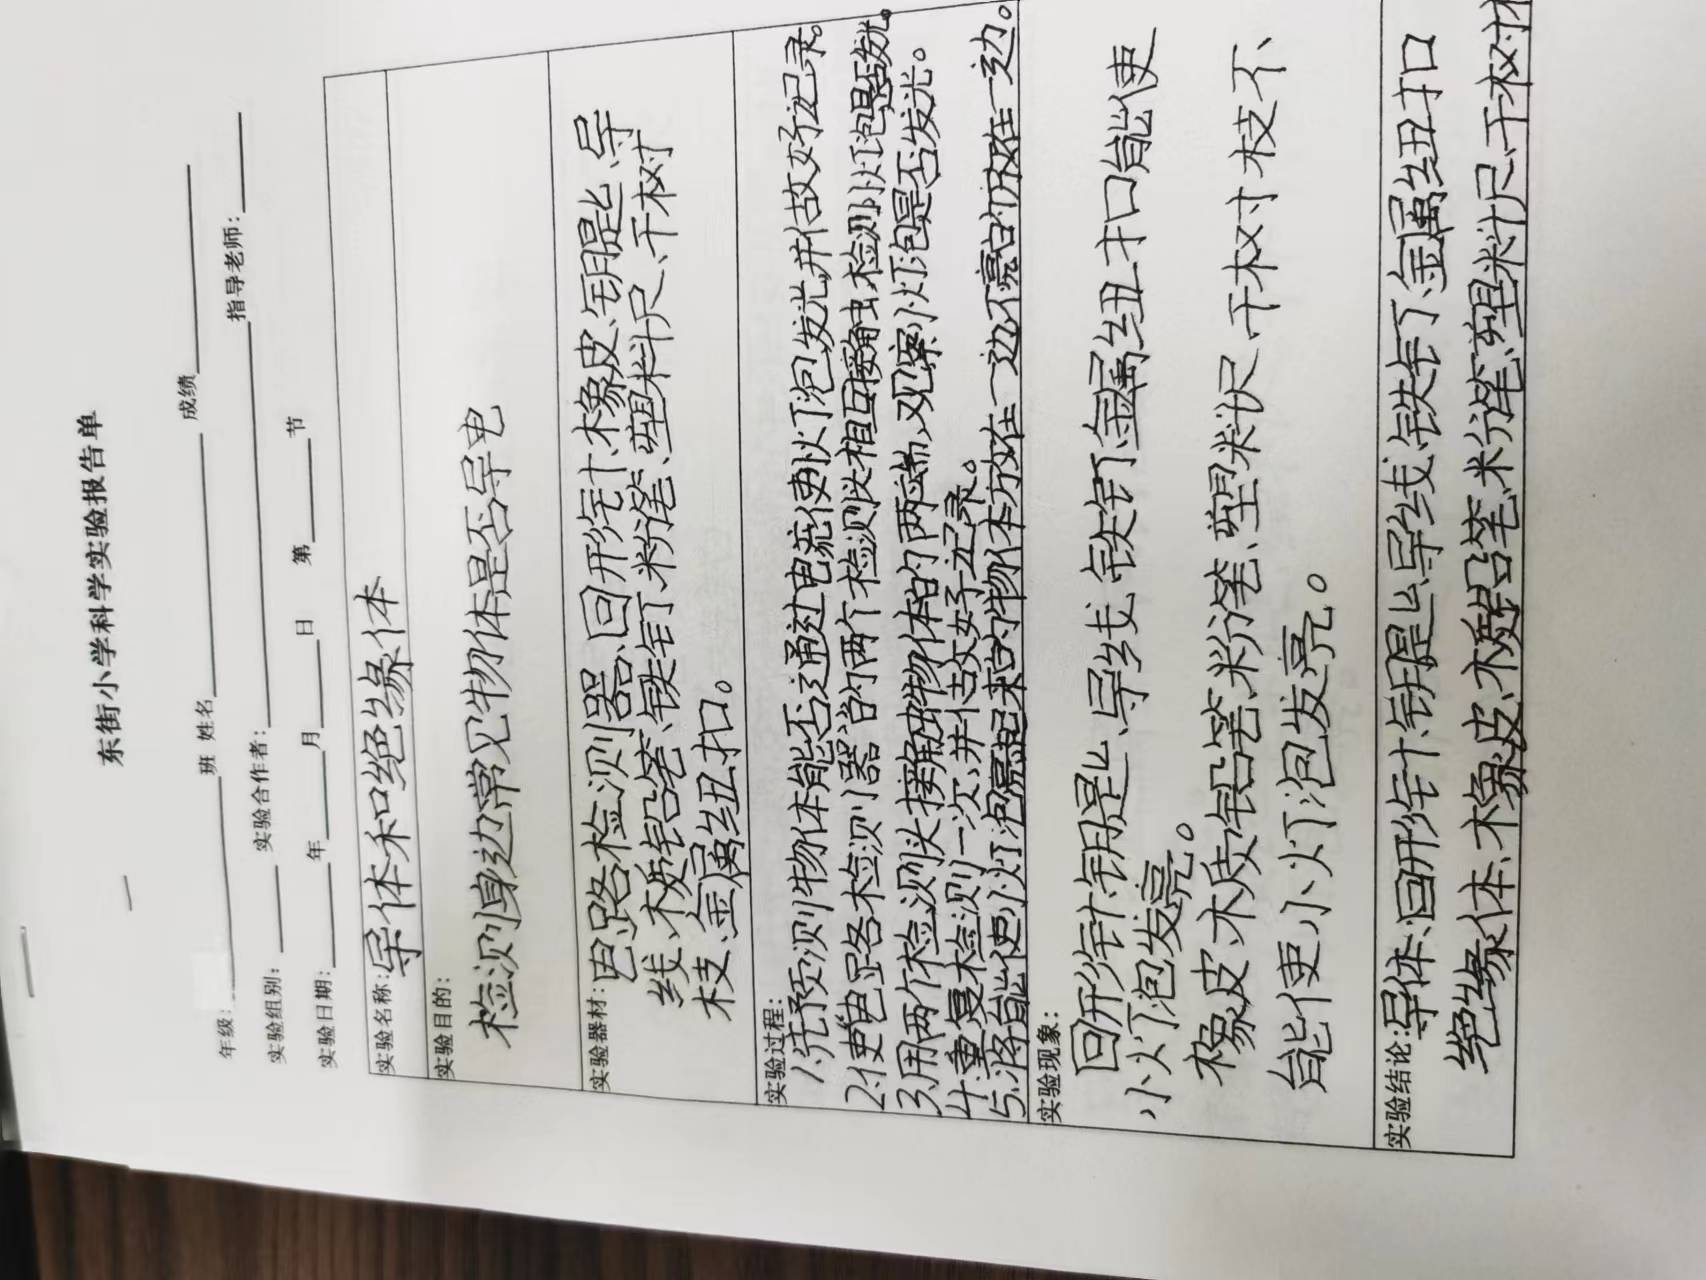 东街小学科学实验报告单
年级：班 姓名 成绩
实验组别： 实验合作者： 指导老师：
实验日期： 年 月 日 第 节
实验名称：导体和绝缘体
实验目的：
检测身边常见物体是否导电
实验器材：电路检测器、回形针、橡皮、钥匙、导
线、木质铅笔、铁钉、粉笔、塑料尺、干树
枝、金属纽扣。
实验过程：
1.先预测物体能否通过电流使小灯泡发光，并做好记录。
2.使电路检测器的两个检测头相互接触，检测小灯泡是否发光。
3.用两个检测头接触物体的两端，观察小灯泡是否发光。
4.重复检测一次，并做好记录。
5.将能使小灯泡亮起来的物体放在一边，不亮的放在一边。
实验现象：
回形针、钥匙、导线、铁钉、金属纽扣能使
小灯泡发亮。
橡皮、木质铅笔、粉笔、塑料尺、干树枝不
能使小灯泡发亮。
实验结论：导体：回形针、钥匙、导线、铁钉、金属纽扣
绝缘体：橡皮、木质铅笔、粉笔、塑料尺、干树枝